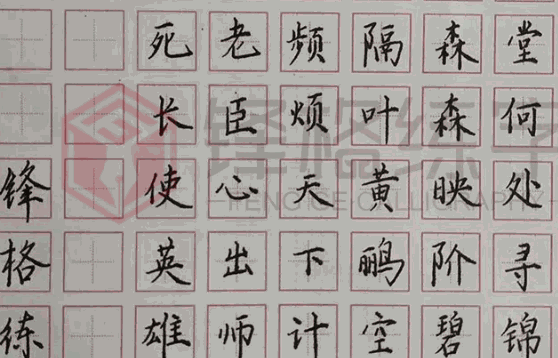 堂何处寻锦
森森映阶碧
隔叶黄鹂空
频烦天下计
老臣心出师
死长使英雄
锋格练
锋格练字
FENG GE CALLIGRAPHY